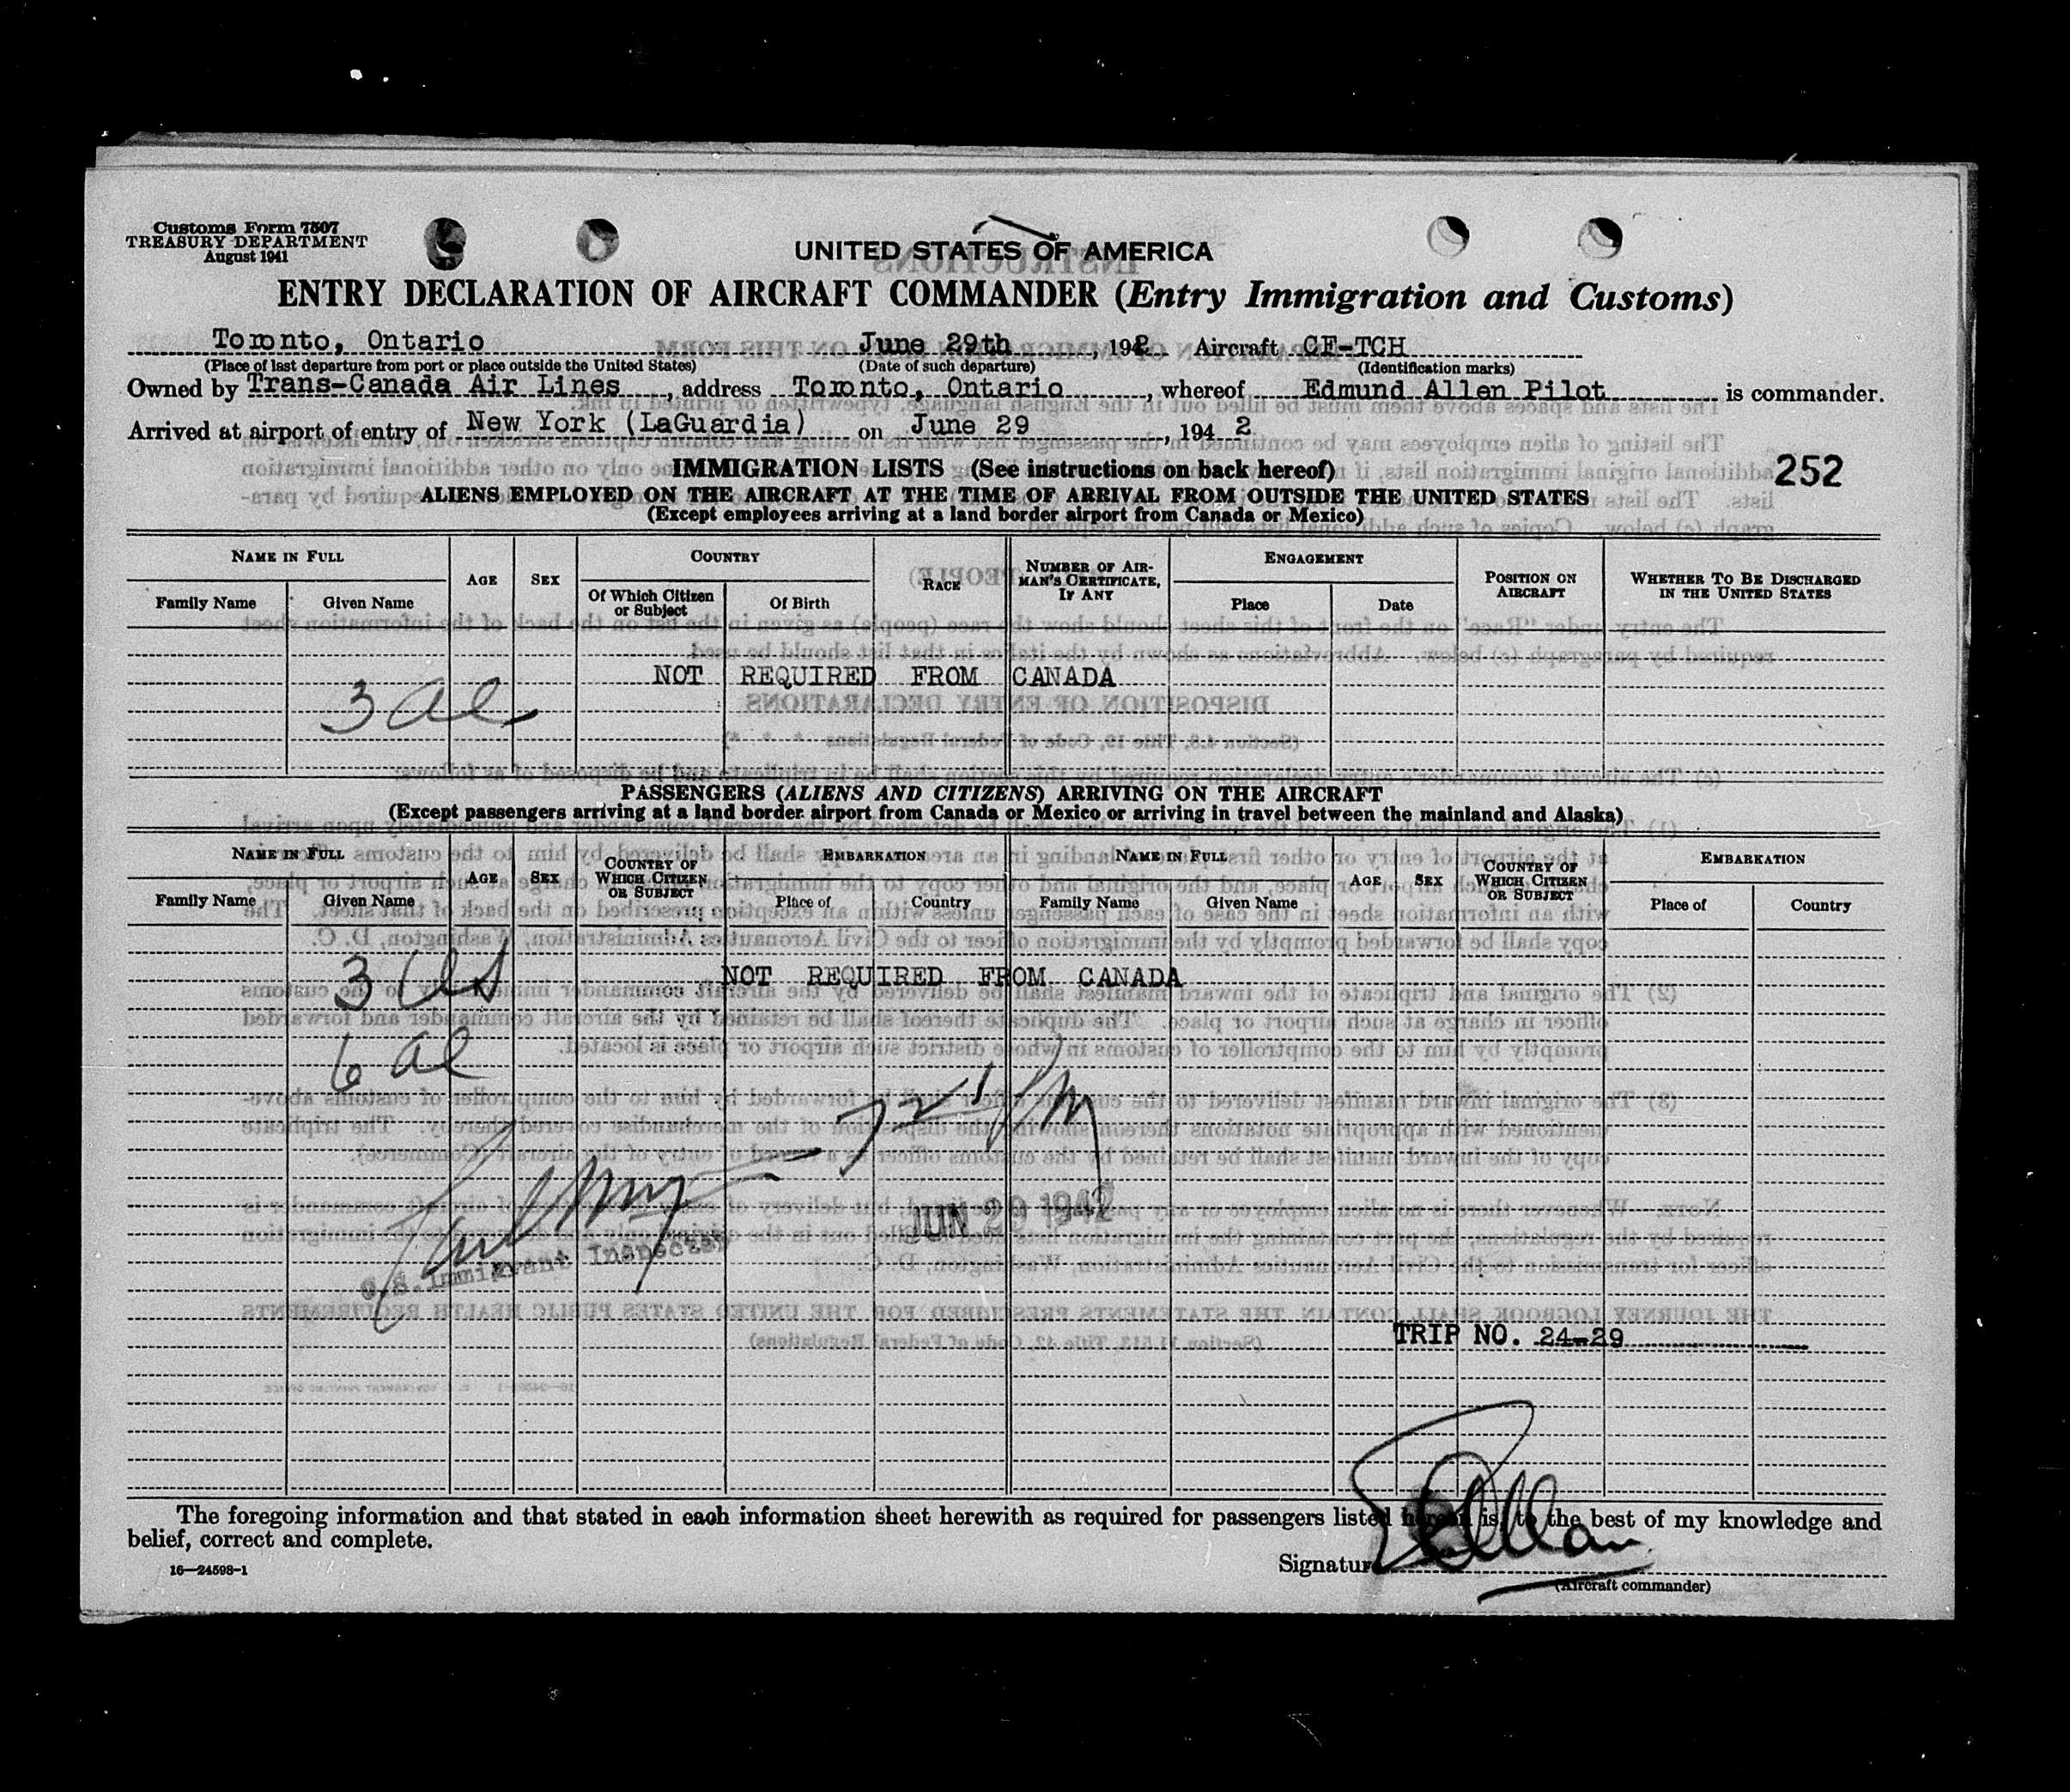 Customs Form 7507
TREASURY DEPARTMENT
August 1941
UNITED STATES OF AMERICA
ENTRY DECLARATION OF AIRCRAFT COMMANDER (Entry Immigration and Customs)
Toronto, Ontario June 29th, 1942 Aircraft CF-TCH
(Place of last departure from port or place outside the United States) (Date of such departure) (Identification marks)
Owned by Trans-Canada Air Lines, address Toronto, Ontario, whereof Edmund Allen Pilot is commander.
Arrived at airport of entry of New York (LaGuardia) on June 29, 1942
IMMIGRATION LISTS (See instructions on back hereof) 252
ALIENS EMPLOYED ON THE AIRCRAFT AT THE TIME OF ARRIVAL FROM OUTSIDE THE UNITED STATES
(Except employees arriving at a land border airport from Canada or Mexico)
NAME IN FULL AGE SEX COUNTRY RACE NUMBER OF AIRMAN'S CERTIFICATE, IF ANY ENGAGEMENT POSITION ON AIRCRAFT WHETHER TO BE DISCHARGED IN THE UNITED STATES
Family Name Given Name Of Which Citizen or Subject Of Birth Place Date
NOT REQUIRED FROM CANADA
3 al
PASSENGERS (ALIENS AND CITIZENS) ARRIVING ON THE AIRCRAFT
(Except passengers arriving at a land border airport from Canada or Mexico or arriving in travel between the mainland and Alaska)
NAME IN FULL AGE SEX COUNTRY OF WHICH CITIZEN OR SUBJECT EMBARKATION NAME IN FULL AGE SEX COUNTRY OF WHICH CITIZEN OR SUBJECT EMBARKATION
Family Name Given Name Place of Country Family Name Given Name Place of Country
3 US NOT REQUIRED FROM CANADA
6 al
JUN 29 1942
U.S. Immigrant Inspector
TRIP NO. 24-29
The foregoing information and that stated in each information sheet herewith as required for passengers listed hereon is, to the best of my knowledge and
belief, correct and complete.
Signature E Allan
(Aircraft commander)
16—24598-1